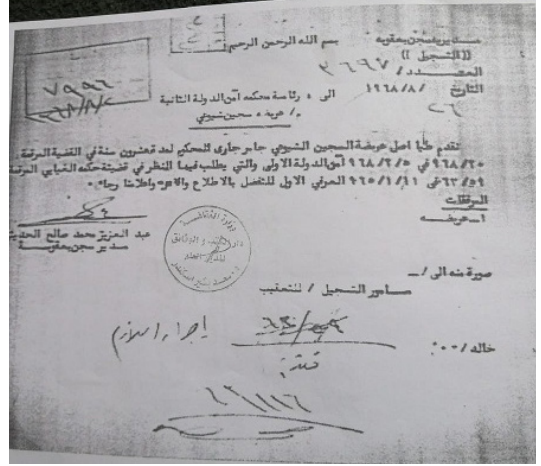 بسم الله الرحمن الرحيم
مديرية سجن بعقوبه
((التسجيل))
العـــدد / ٣٦٩٧
التاريخ / ٢٦/٨/١٩٦٨
٧٩٩٦
الى / رئاسة محكمه امن الدولة الثانية
م/ عريضه سجين شيوعي
نقدم طيا اصل عريضة السجين الشيوعي جابر جارى المحكوم لمدة عشرون سنة في القضية المرقمة
٩٦٨/٢٠ في ٩٦٨/٢/٥ امن الدولة الاولى والتي يطلب فيها النظر في قضيته حكمه الغيابي المرقمة
٦٣/٥٩ في ٩٦٥/١/١١ العرفي الاول للتفضل بالاطلاع والامر واعلامنا رجاء
المرفقات
١ـ عريضه
عبد العزيز محمد صالح الحديثي
مدير سجن بعقوبة
دار الكتب والوثائق
صورة منه الى /ـ
مامور التسجيل / للتعقيب
خالد /
إجراء اللازم